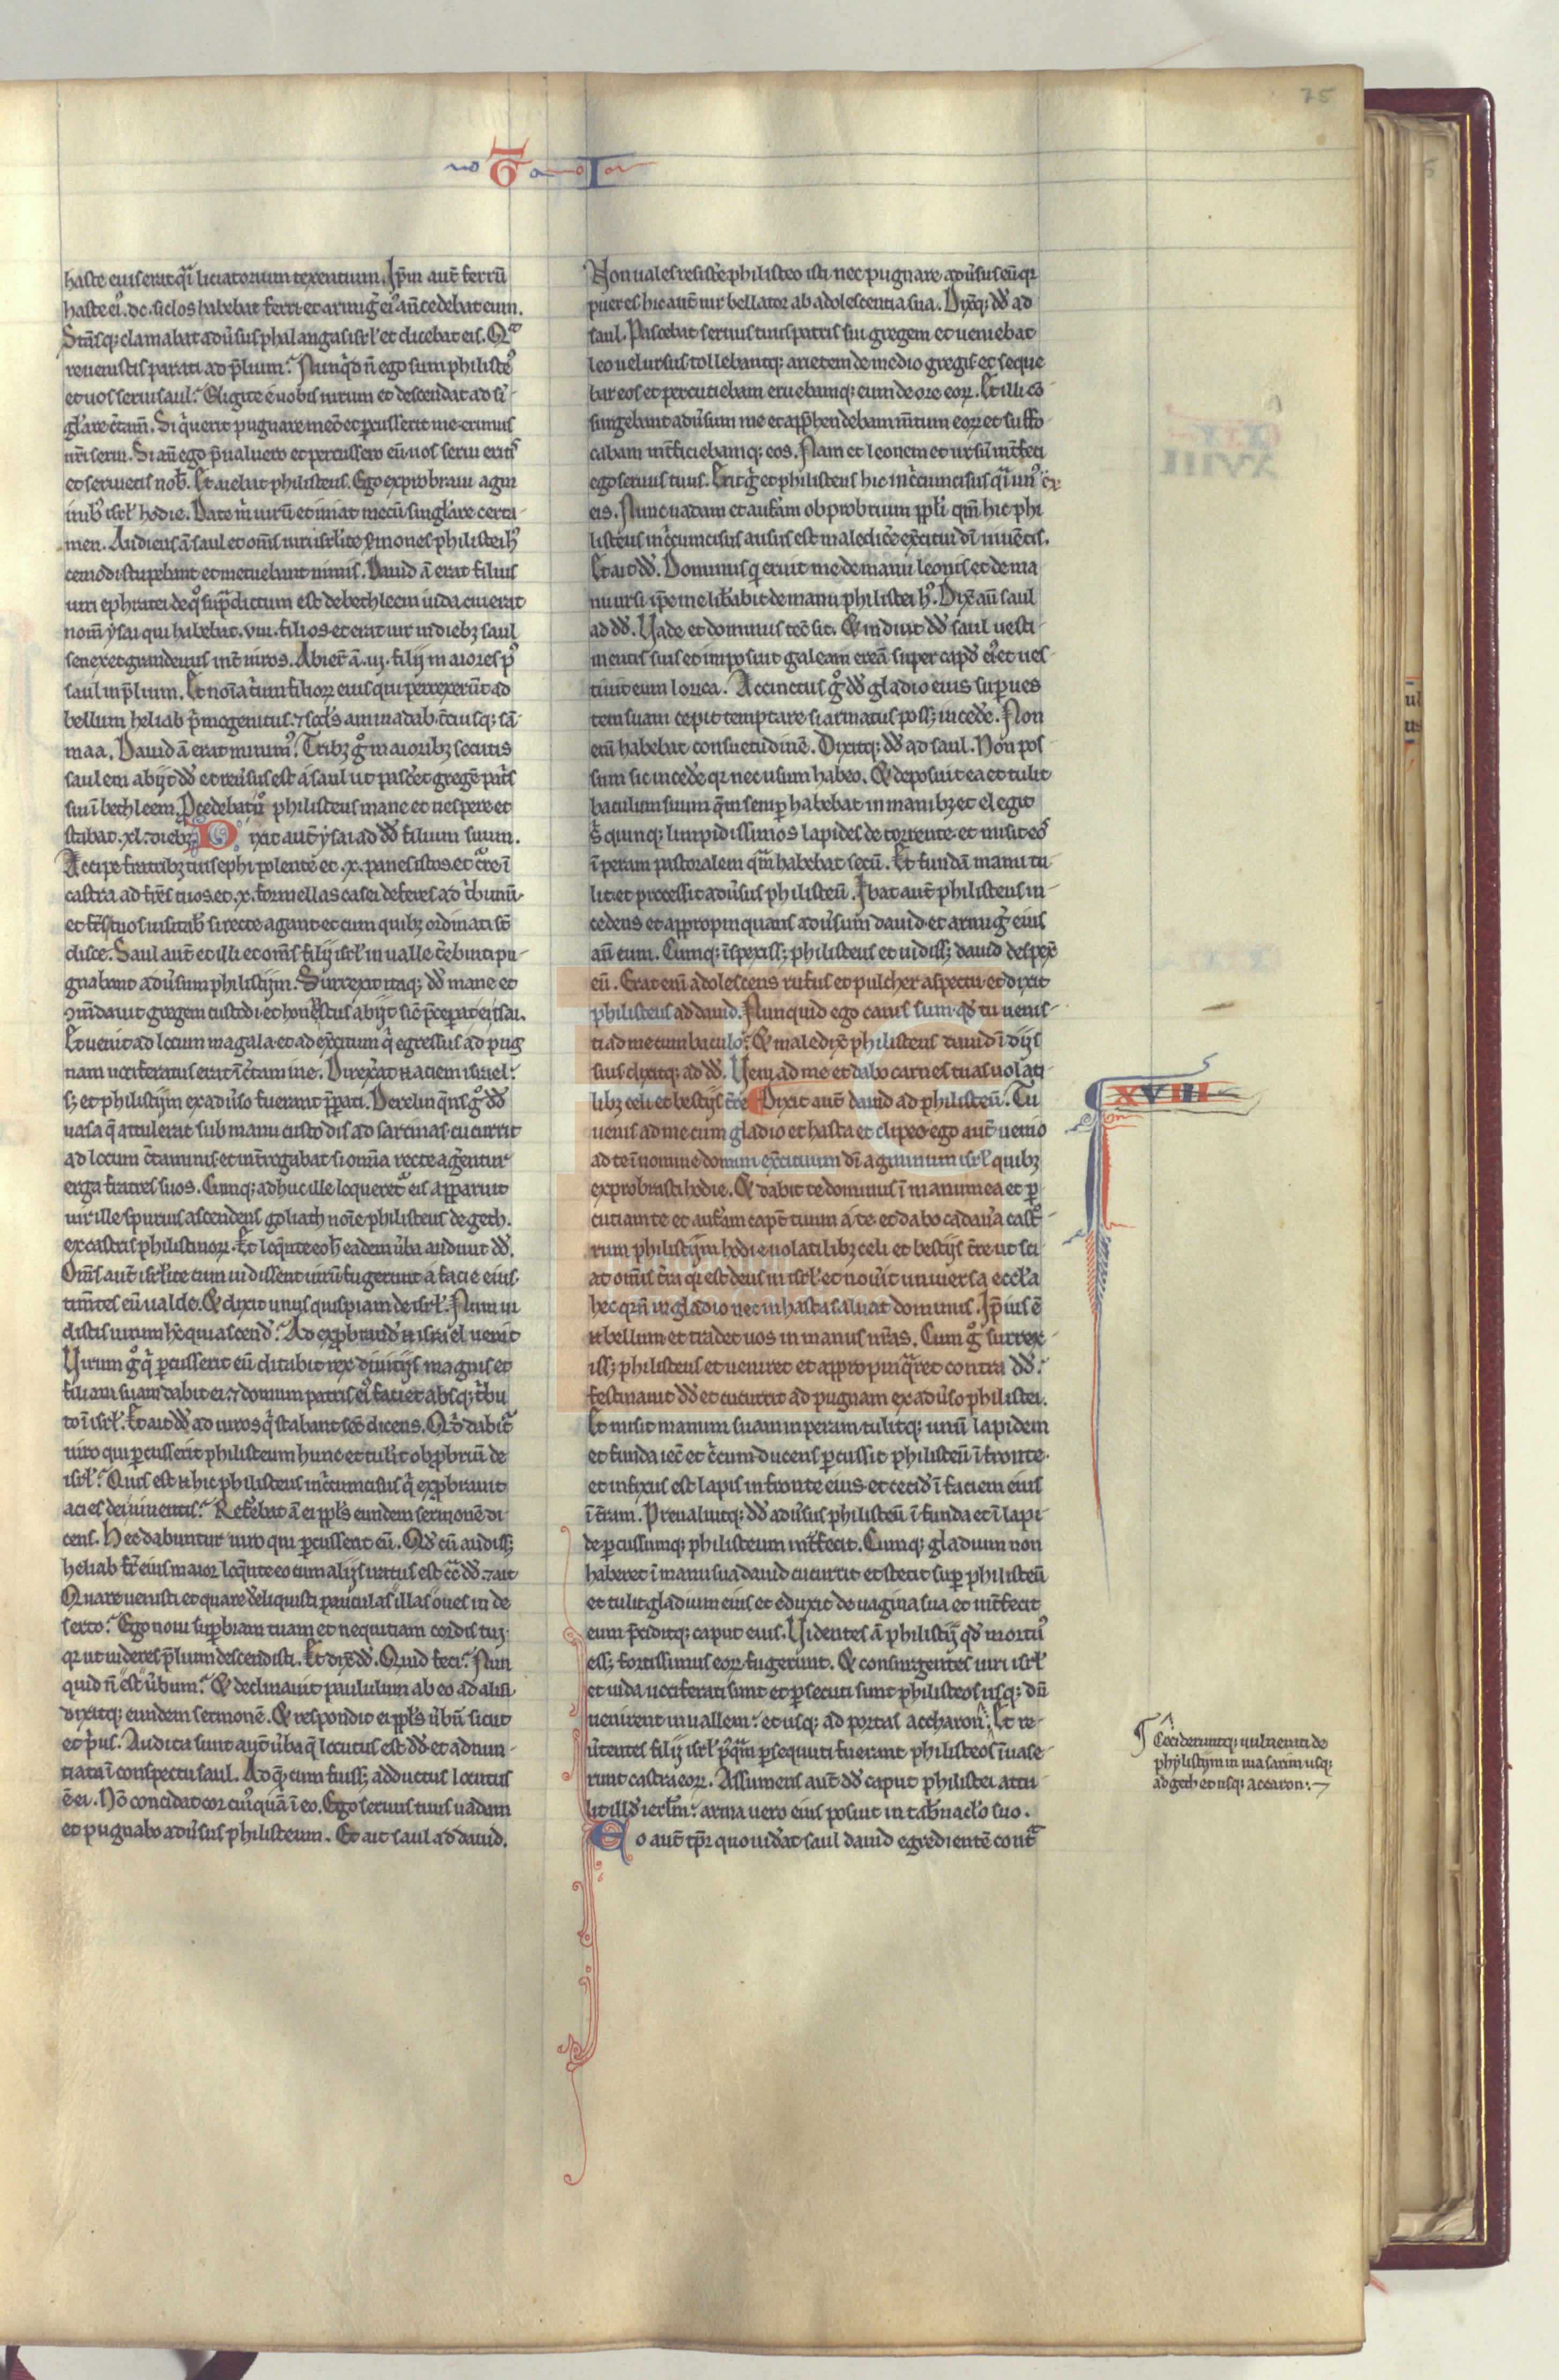 75
G I
haste eius erat q̃i liciatorium texentium. Ip̃m aut̃ ferrũ
haste ei᷒ .dc. siclos habebat ferri et armig̃ ei᷒ añcedebat eum.
Stãsq; clamabat adũsus phalangas isrl̃ et dicebat eis. Qͣ
re uenistis parati ad p̃lium? Nunq̃d ñ ego sum philiste᷒
et uos serui saul? Eligite ẽ uobis uirum et descendat ad si
gl̃are c̃tam̃. Si q̃uerit pugnare mec̃ et p̃cusserit me erimus
ur̃i serui. Si añ ego p̃ualuero et percussero eũ uos serui eritis
et seruietis nob̃. Et aiebat philisteus. Ego exprobraui agmi
inib᷒ isrl̃ hodie. Date m̃ uirũ et ineat mecũ singl̃are certa
men. Audiens ã saul et om̃s uiri isrl̃ite s̃mones philistei h᷒
cemodi stupebant et metuebant nimis. Dauid ã erat filius
uiri ephratei de q᷒ sup̃dictum est de bethleem iuda cui erat
nom̃ ysai qui habebat .viii. filios et erat uir in diebʒ saul
senex et grandeuus int̃ uiros. Abier̃t ã .iii. filii maiores p᷒
saul in p̃lium. Et noĩa t̃um filiorꝝ eius qui perrexerũt ad
bellum heliab p̃mogenitus. ⁊ scd̃s aminadab. t̃ciusq; sã
maa. Dauid ã erat minim᷒. Tribʒ g᷒ maioribʒ secutis
saulem abijt dd̃ et reũsus est a saul ut pasc̃et gregẽ pat̃s
sui ĩ bethleem. P̃cedebat ũ philisteus mane et uespere et
stabat .xl. diebʒ. Dixit aut̃ ysai ad dd̃ filium suum.
Accipe fratribʒ tuis ephi polentẽ et .x. panes istos et c̃re ĩ
castra ad fr̃es tuos. et .x. formellas casei deferes ad t̃bunũ.
et fr̃es tuos uisitab̃ si recte agant et cum quibʒ ordinati st̃
disce. Saul aut̃ et illi et om̃s filij isrl̃ in ualle t̃ebinti pu
gnabant adũsum philistijm. Surrexit itaq; dd̃ mane et
ꝯm̃dauit gregem custodi et honustus abijt sic̃ p̃ceperat ei ysai.
Et uenit ad locum magala et ad exc̃itum q̃ egressus ad pug
nam uociferatus erat ĩ c̃tamine. Direx̃at n aciem israel:
sʒ et philistijm ex adũso fuerant p̃pati. Derelinq̃ns g᷒ dd̃
uasa q̃ attulerat sub manu custodis ad sarcinas cucurrit
ad locum c̃taminis et int̃rogabat si om̃ia recte ag̃entur
erga fratres suos. Cumq; adhuc ille loqueret̃ eis apparuit
uir ille spurius ascendens goliath noĩe philisteus de geth.
ex castris philistinorꝝ. Et loq̃nte eo h̃ eadem ũba audiuit dd̃.
Om̃s aut̃ isrl̃ite cum uidissent uirũ fugerunt a facie eius.
tim̃tes eũ ualde. Et dixit unus quispiam de isrl̃. Num ui
distis uirum h̃c qui ascend̃? Ad exp̃brand̃ n israel uenit
Uirum g᷒ q̃ p̃cusserit eũ ditabit rex diuitijs magnis et
filiam suam dabit ei. ⁊ domum patris ei᷒ faciet absq; t̃bu
to ĩ isrl̃. Et ait dd̃ ad uiros q̃ stabant sec̃ dicens. Qͥd dabit̃
uiro qui p̃cusserit philisteum hunc et tul̃it obp̃briũ de
isrl̃? Quis est n hic philisteus inc̃umcisus q̃ exp̃brauit
acies dei uiuentis? Ref̃ebat ã ei ppl̃s eundem sermonẽ di
cens. Hec dabuntur uiro qui p̃cusserit eũ. Qd̃ cũ audissʒ
heliab fr̃ eius maior loq̃nte eo cum alijs iratus est c̃ dd̃. ⁊ ait
Quare uenisti et quare d̃eliquisti pauculas illas oues in de
serto? Ego noui sup̃biam tuam et nequitiam cordis tui.
qr ut uideres p̃lium descendisti. Et dix̃ dd̃. Quid feci? Nun
quid ñ est ũbum? Et declinauit paululum ab eo ad aliũ.
dixitq; eundem sermonẽ. Et respondit ei ppl̃s ũbũ sicut
et p̃us. Audita sunt aut̃ ũba q̃ locutus est dd̃ et adnun
tiata ĩ conspectu saul. Ad q̃ cum fuissʒ adductus locutus
ẽ ei. Nõ concidat cor cuiusquã ĩ eo. Ego seruus tuus uadam
et pugnabo adũsus philisteum. Et ait saul ad dauid.
Non uales resist̃e philisteo isti nec pugnare adũsus eũ qr
puer es hic aut̃ uir bellator ab adolescentia sua. Dix̃q; dd̃ ad
saul. Pascebat seruus tuus patris sui gregem et ueniebat
leo uel ursus tollebantq; arietem de medio gregis et seque
bar eos et percutiebam eruebamq; eum de ore eorꝝ. Et illi cõ
surgebant adũsum me et app̃hendebam m̃tum eorꝝ et suffo
cabam int̃ficiebamq; eos. Nam et leonem et ursũ int̃feci
ego seruus tuus. Erit g̃ et philisteus hic inc̃umcisus q̃i un᷒ ex
eis. Nunc uadam et auf̃am obprobrium ppl̃i qm̃ hic phi
listeus inc̃umcisus ausus est maledic̃e exc̃itui dĩ uiuẽtis.
Et ait dd̃. Dominus q̃ eruit me de manu leonis et de ma
nu ursi ip̃e me lib̃abit de manu philistei h᷒. Dix̃ aũ saul
ad dd̃. Uade et dominus tec̃ sit. Et induit dd̃ saul uesti
mentis suis et imposuit galeam ereã super cap̃d ei᷒ et ues
tiuit eum lorica. Accinctus g᷒ dd̃ gladio eius sup̃ ues
tem suam cepit temptare si armatus possʒ inced̃e. Non
em̃ habebat consuetudinẽ. Dixitq; dd̃ ad saul. Non pos
sum sic inced̃e qr nec usum habeo. Et deposuit ea et tulit
baculum suum q̃m semp̃ habebat in manibʒ et elegit
s̃ quinq; limpidissimos lapides de torrente et misit eos
ĩ peram pastoralem q̃m habebat secũ. Et fundã manu tu
lit et processit adũsus philisteũ. Ibat aut̃ philisteus in
cedens et appropinquans adũsum dauid et armig̃ eius
añ eum. Cumq; ĩspexissʒ philisteus et uidissʒ dauid despex̃
eũ. Erat em̃ adolescens rufus et pulcher aspectu et dixit
philisteus ad dauid. Nunquid ego canis sum qd̃ tu uenis
ti ad me cum baculo? Et maledix̃ philisteus dauid ĩ dijs
suis dixitq; ad dd̃. Ueni ad me et dabo carnes tuas uolati
libʒ celi et bestijs t̃re. Dixit aut̃ dauid ad philisteũ. Tu
XVIII
uenis ad me cum gladio et hasta et clipeo ego aut̃ uenio
ad te ĩ nomine domini exc̃ituum dĩ agminum isrl̃ quibʒ
exprobrasti hodie. Et dabit te dominus ĩ manu mea et p̃
cutiam te et auf̃am cap̃t tuum a te et dabo cadau̾a cast᷒
rum philistijm hodie uolatilibʒ celi et bestijs t̃re ut sci
at omnis t̃ra qr est deus in isrl̃ et nou̾it uniuersa eccl̃a
hec qr ñ in gladio nec in hasta saluat dominus. Ip̃ius ẽ
n bellum et tradet uos in manus nr̃as. Cum g᷒ surrex
issʒ philisteus et ueniret et appropinq̃ret contra dd̃:
festinauit dd̃ et cucurrit ad pugnam ex adũso philistei.
Et misit manum suam in peram tulitq; unũ lapidem
et funda iec̃ et c̃cumducens p̃cussit philisteũ ĩ fronte.
et infixus est lapis in fronte eius et cecid̃ ĩ faciem eius
ĩ t̃ram. Preualuitq; dd̃ adũsus philisteũ ĩ funda et ĩ lapi
de p̃cussumq; philisteum int̃fecit. Cumq; gladium non
haberet ĩ manu sua dauid cucurrit et stetit sup̃ philisteũ
et tulit gladium eius et eduxit de uagina sua et int̃fecit
eum p̃ciditq; caput eius. Uidentes ã philistij̃ qd̃ mortu᷒
essʒ fortissimus eorꝝ fugerunt. Et consurgentes uiri isrl̃
et iuda uociferati sunt et p̃secuti sunt philisteos usq; dũ
uenirent in uallem: et usq; ad portas accharon. Et re
ũtentes filij isrl̃ p᷒q̃m p̃sequuti fuerant philisteos ĩuase
runt castra eorꝝ. Assumens aut̃ dd̃ caput philistei attu
lit illd̃ ierl̃m: arma uero eius posuit in tab̃nacl̃o suo.
Eo aut̃ tp̃r quo uid̃at saul dauid egredientẽ cont̃
Cecideruntq; uulnerati de
phylistijm in uia sarim usq;
ad geth et usq; accaron: